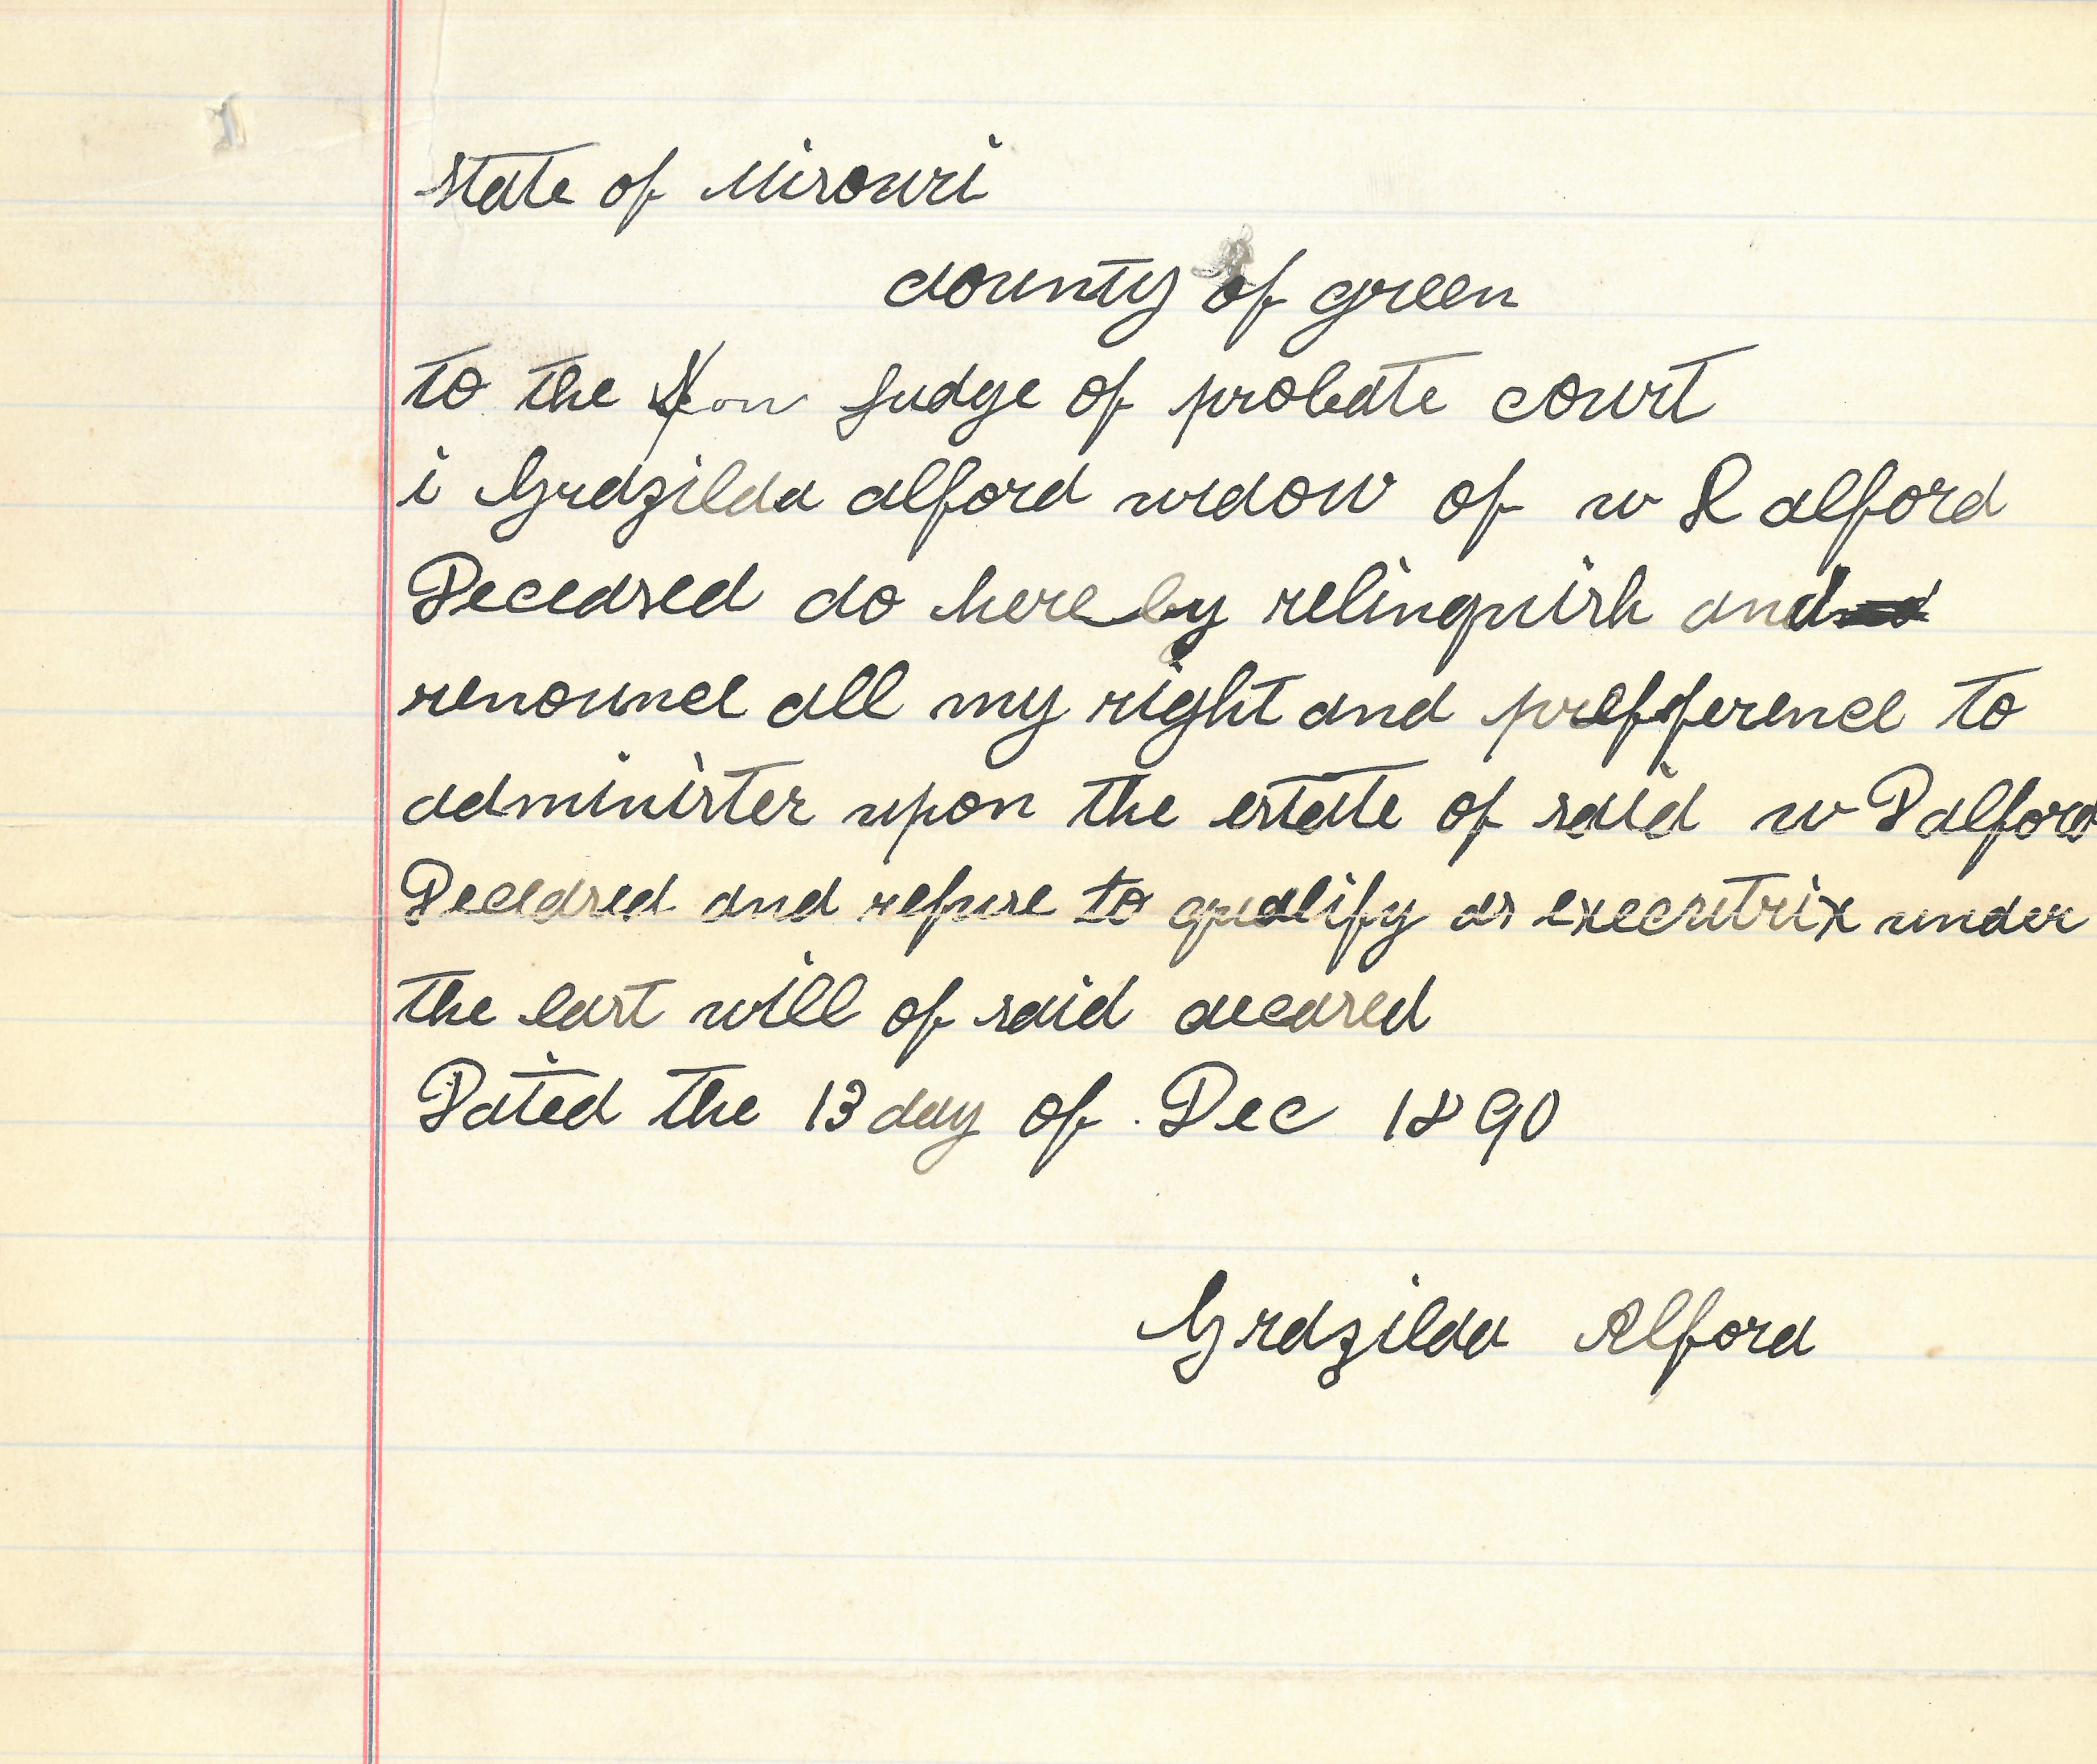 state of Misouri
county of green
to the Hon Judge of probate court
i Grazilda alford widow of w D alford
Deceased do here by relinquish and
renounce all my right and prefference to
administer upon the estate of said w D alford
Deceased and refuse to qualify as executrix under
the last will of said deceased
Dated the 13 day of Dec 1890
Grazilda Alford